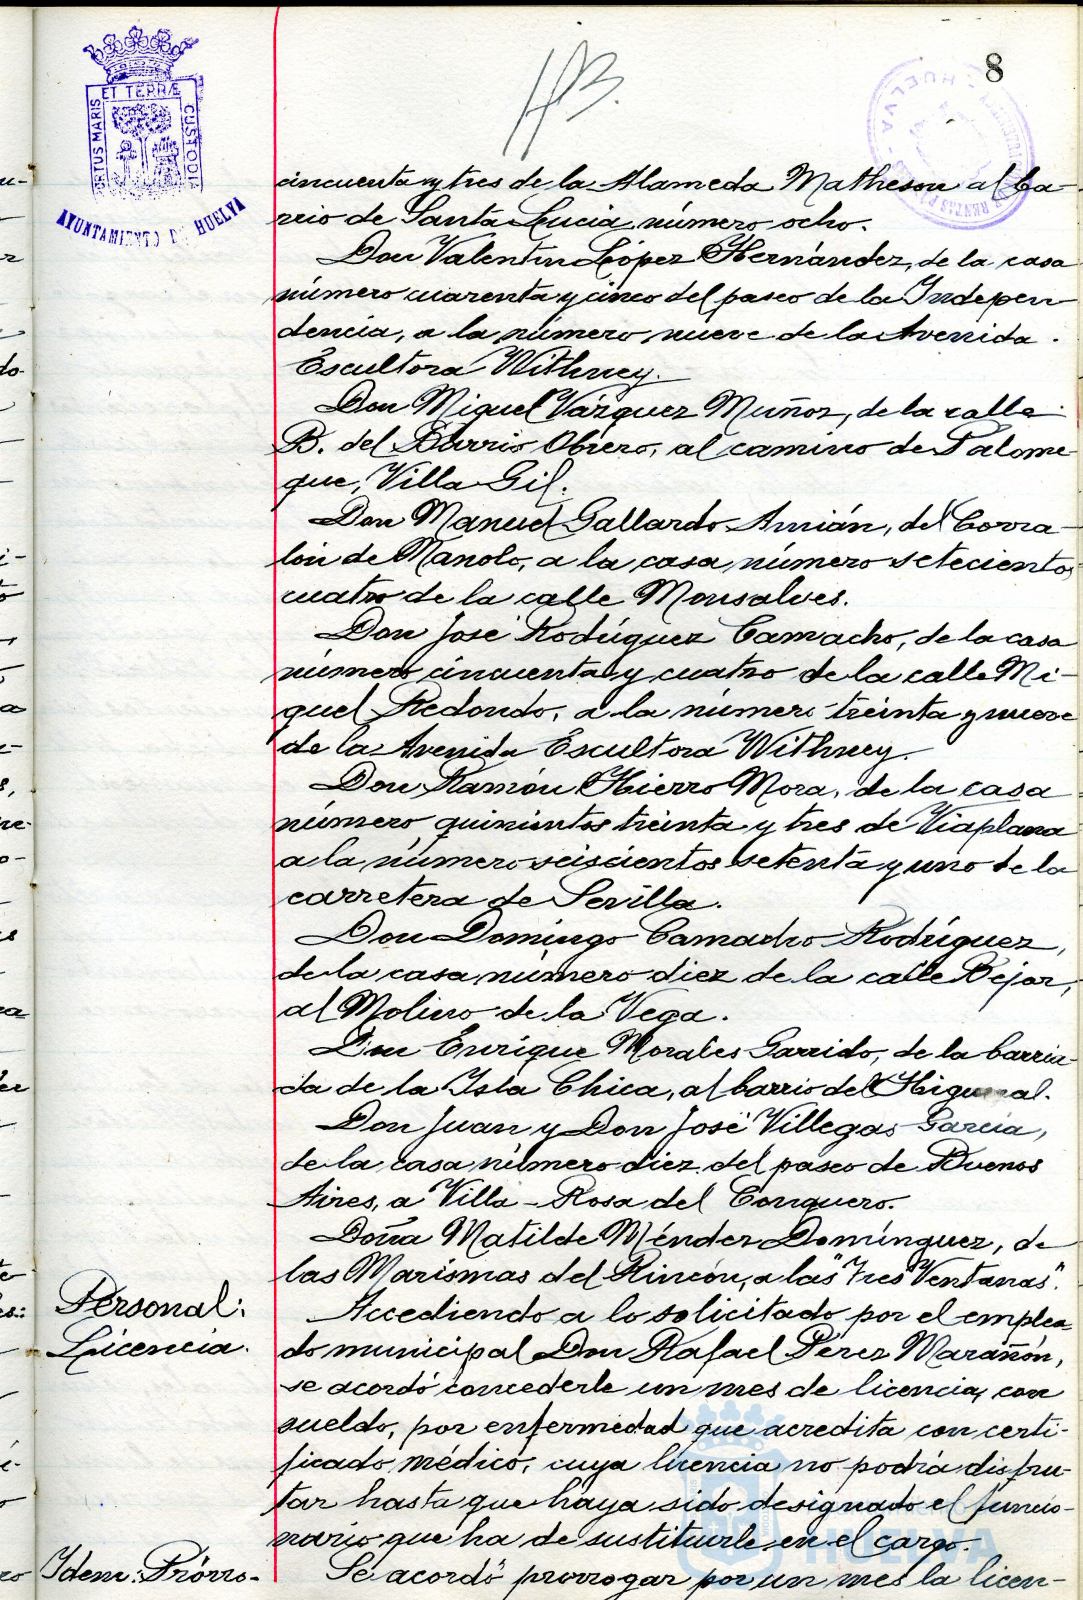 8
PORTUS MARIS ET TERRÆ CUSTODIA
AYUNTAMIENTO DE HUELVA
HUELVA
cincuenta y tres de la Alameda Matheson al ba-
rrio de Santa Lucia, número ocho.
Don Valentín López Hernández, de la casa
número cuarenta y cinco del paseo de la Indepen
dencia, a la número nueve de la Avenida
Escultora Withney.
Don Miguel Vázquez Muñoz, de la calle
B. del Barrio Obrero, al camino de Palome
que, Villa Gil.
Don Manuel Gallardo Amián, del Corra-
lón de Manolo, a la casa número setecientos
cuatro de la calle Monsalves.
Don José Rodríguez Camacho, de la casa
número cincuenta y cuatro de la calle Mi-
guel Redondo, a la número treinta y nueve
de la Avenida Escultora Withney.
Don Ramón Hierro Mora, de la casa
número quinientos treinta y tres de Viaplana
a la número seiscientos setenta y uno de la
carretera de Sevilla.
Don Domingo Camacho Rodríguez,
de la casa número diez de la calle Bejar,
al Molino de la Vega.
Don Enrique Morales Garrido, de la barria-
da de la Isla Chica, al barrio del Higueral.
Don Juan y Don José Villegas García,
de la casa número diez del paseo de Buenos
Aires, a Villa-Rosa del Conquero.
Doña Matilde Méndez Domínguez, de
las Marismas del Rincón, a las "Tres Ventanas".
Personal:
Licencia.
Accediendo a lo solicitado por el emplea-
do municipal Don Rafael Pérez Marañón,
se acordó concederle un mes de licencia, con
sueldo, por enfermedad que acredita con certi-
ficado médico, cuya licencia no podrá disfru-
tar hasta que haya sido designado el funcio-
nario que ha de sustituirle en el cargo.
Idem: Prórro-
Se acordó prorrogar por un mes la licen-
HUELVA